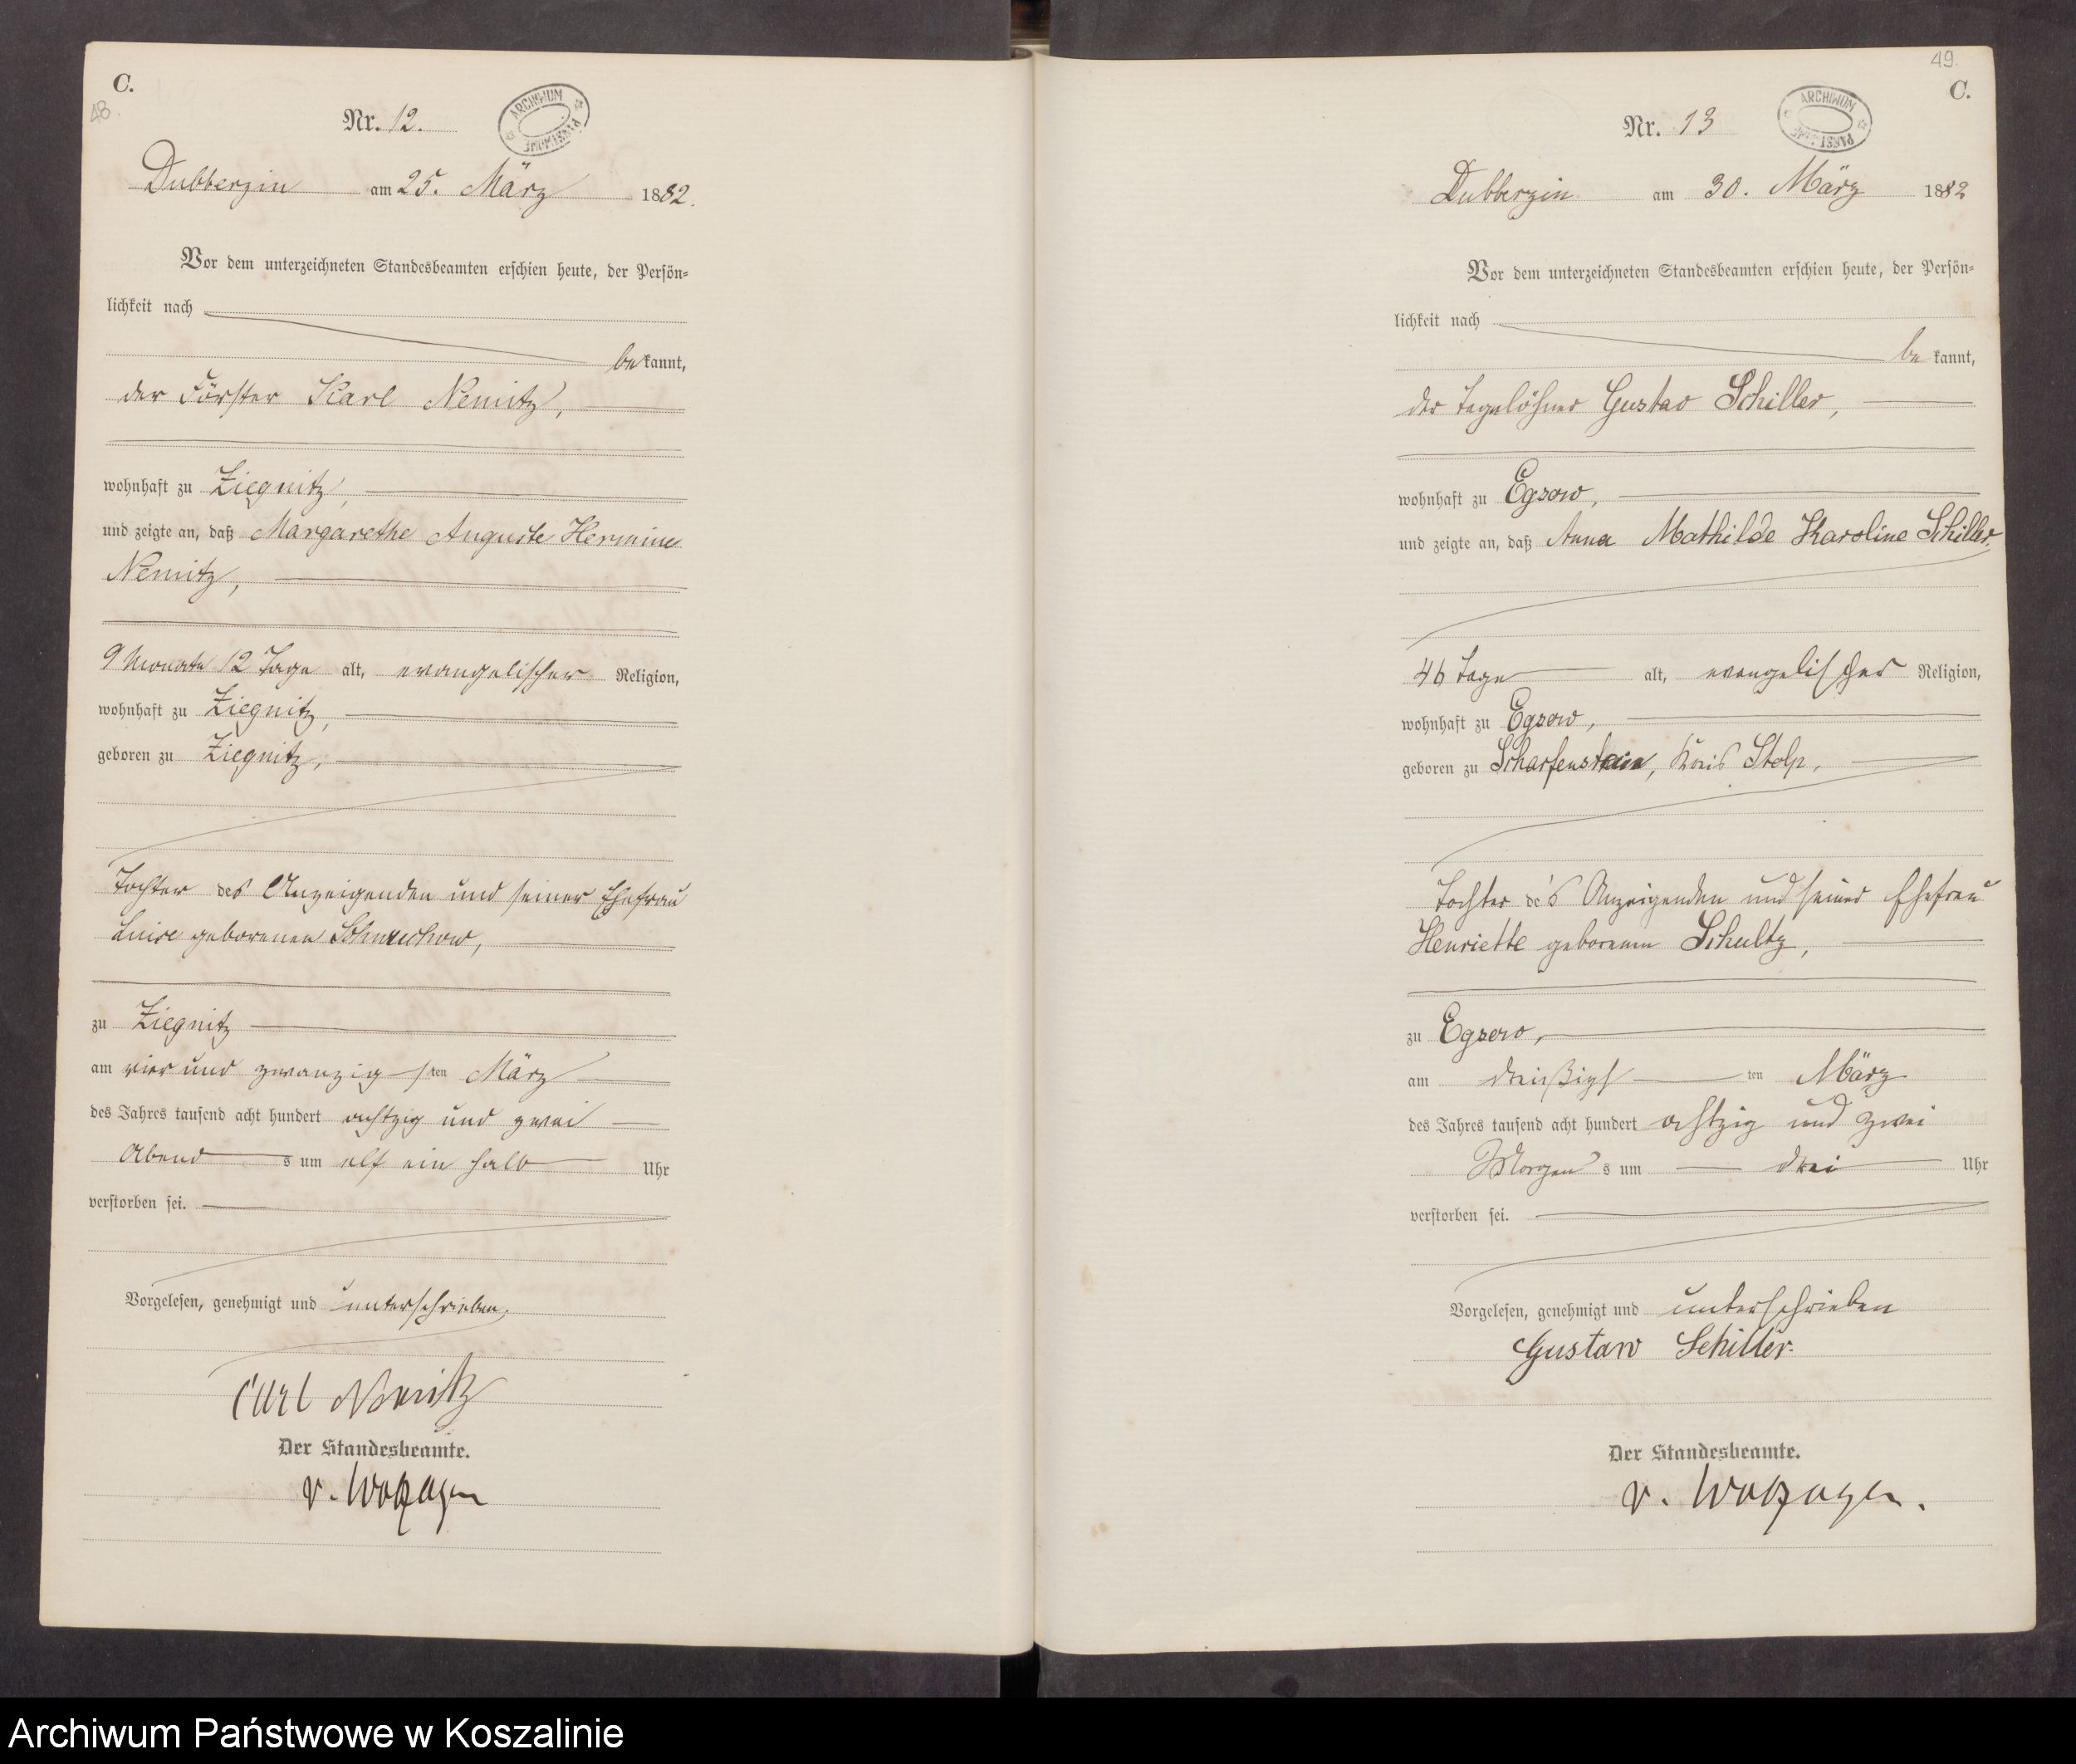 C.
48.
Nr. 12.
ARCHIWUM PAŃSTWOWE
Dubberzin am 25. März 1882.
Vor dem unterzeichneten Standesbeamten erschien heute, der Persön-
lichkeit nach
bekannt,
der Förster Karl Nemitz,
wohnhaft zu Ziegnitz,
und zeigte an, daß Margarethe Auguste Hermine
Nemitz,
9 Monate 12 Tage alt, evangelischer Religion,
wohnhaft zu Ziegnitz,
geboren zu Ziegnitz,
Tochter des Anzeigenden und seiner Ehefrau
Luise geborenen
zu Ziegnitz
am vier und zwanzigsten März
des Jahres tausend acht hundert achtzig und zwei
Abends um elf ein halb Uhr
verstorben sei.
Vorgelesen, genehmigt und unterschrieben.
Carl Nemitz
Der Standesbeamte.
v.
49.
C.
Nr. 13
ARCHIWUM PAŃSTWOWE
Dubberzin am 30. März 1882
Vor dem unterzeichneten Standesbeamten erschien heute, der Persön-
lichkeit nach
bekannt,
der Tagelöhner Gustav Schiller,
wohnhaft zu Egsow,
und zeigte an, daß Anna Mathilde Karoline Schiller,
46 Tage alt, evangelischer Religion,
wohnhaft zu Egsow,
geboren zu Scharfenstein, Kreis Stolp,
Tochter des Anzeigenden und seiner Ehefrau
Henriette geborenen Schultz,
zu Egsow,
am dreißigsten März
des Jahres tausend acht hundert achtzig und zwei
Morgens um drei Uhr
verstorben sei.
Vorgelesen, genehmigt und unterschrieben
Gustaw Schiller.
Der Standesbeamte.
v.
Archiwum Państwowe w Koszalinie